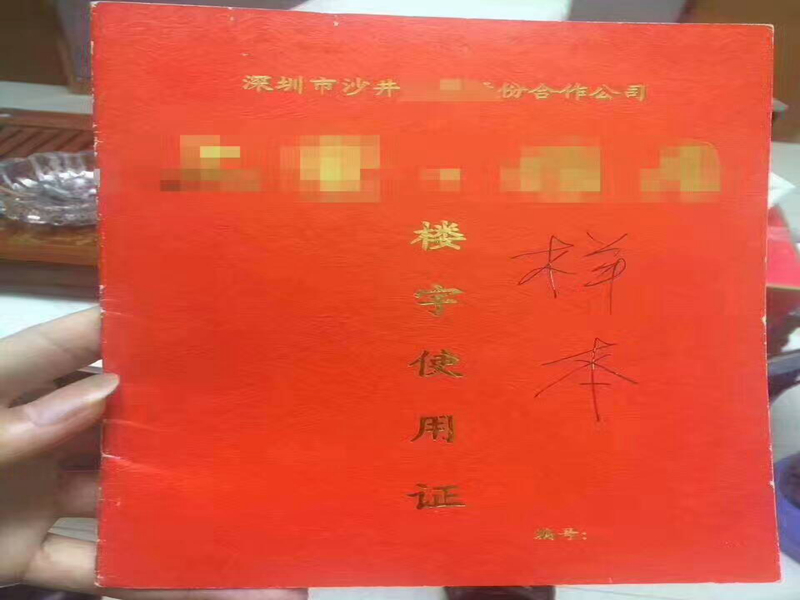 深圳市沙井 份合作公司
楼宇使用证
样本
编号: